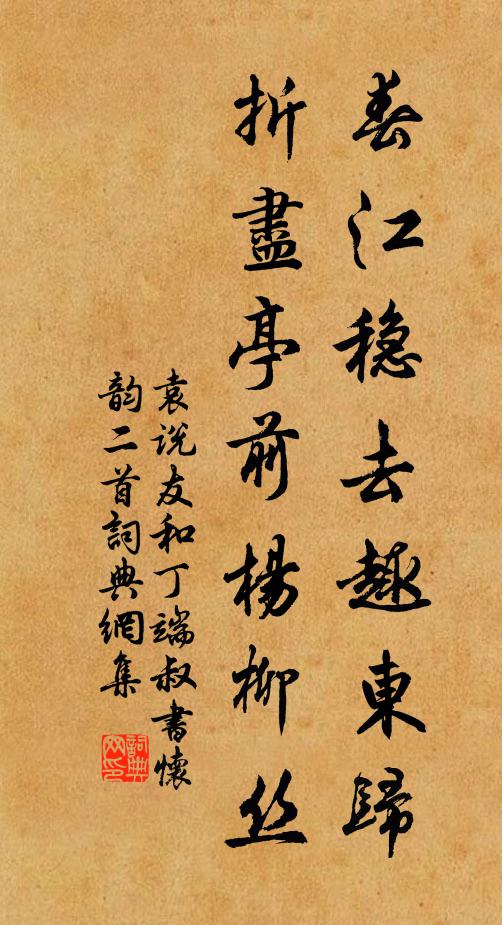 春江穩去趣東歸
折盡亭前楊柳丝
袁说友和丁端叔書懷
韵二首詞典網集
詞典网印